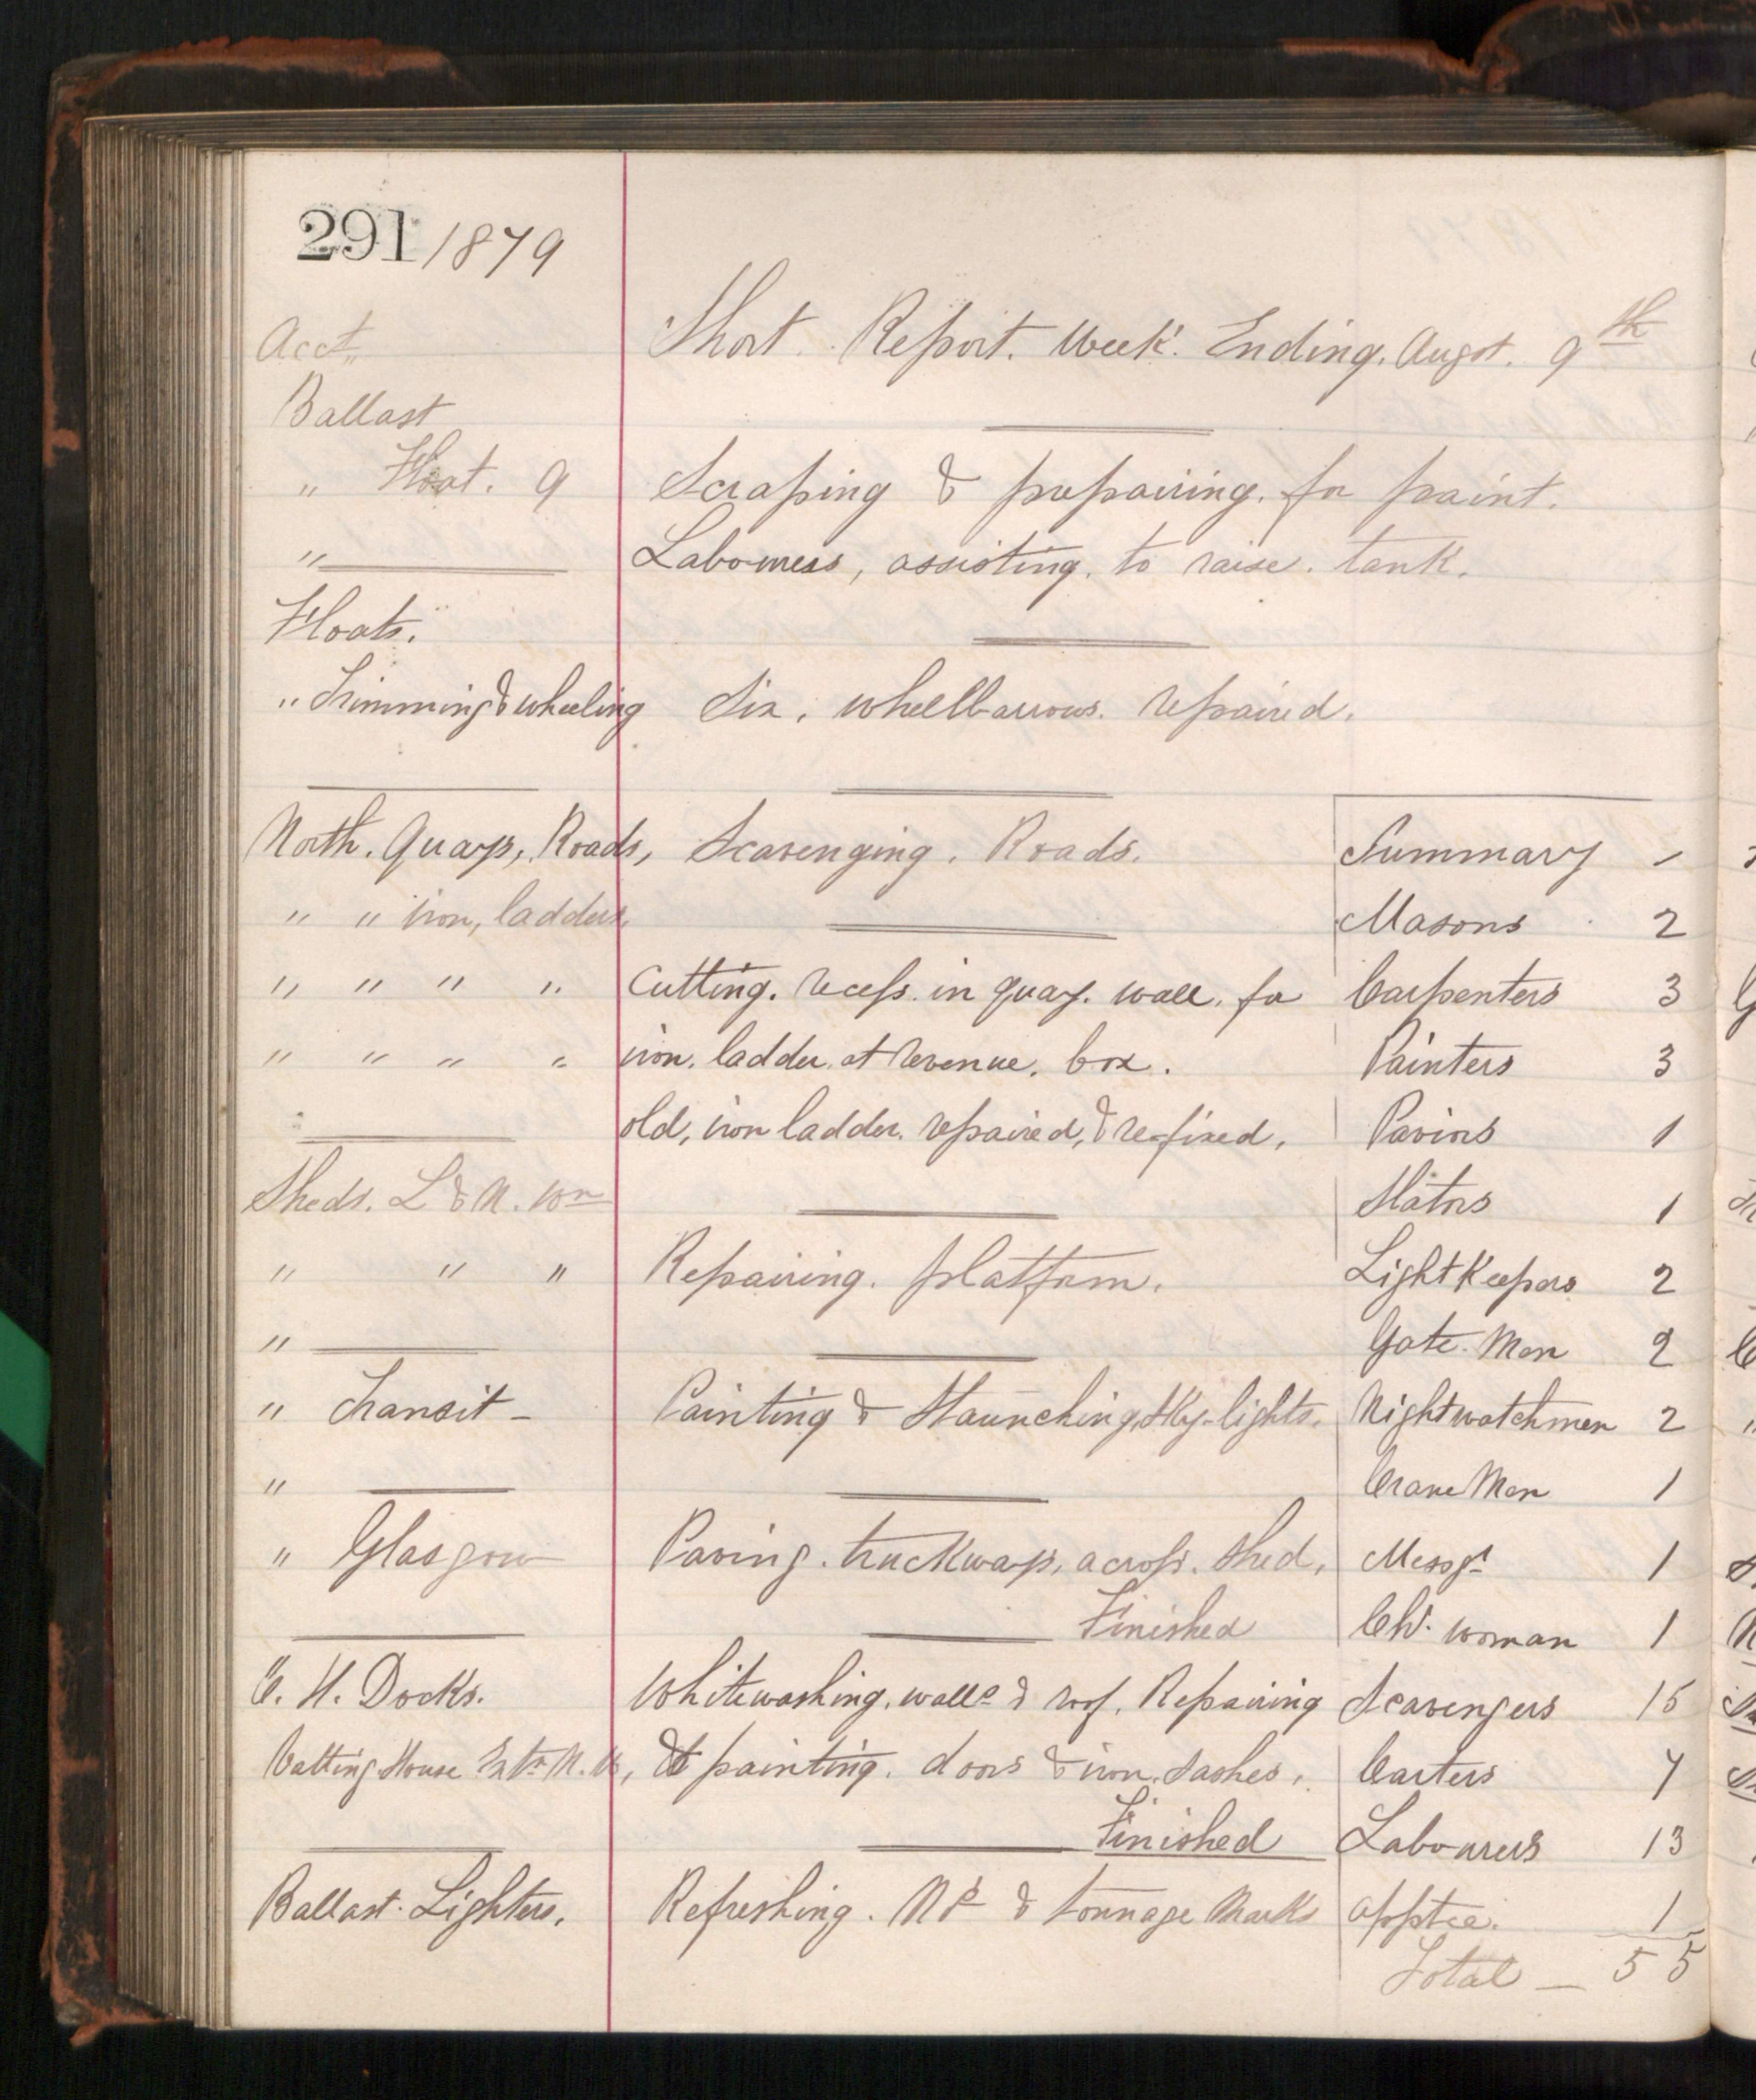 291 1879
Acct. Short Report. Week Ending. Augst. 9th
Ballast
" Float. 9 Scraping & prepairing. for paint.
" Labourers, assisting. to raise. tank.
Floats.
" Trimming & wheeling Six. wheelbarrows. repaired.
North. Quays, Roads, Scavenging. Roads. Summary
" " iron, ladders. Masons 2
" " " " Cutting. recess. in quay. wall. for Carpenters 3
" " " " iron. ladder. at revenue. box. Painters 3
old, iron ladder. repaired, & re-fixed. Paviors 1
Sheds. L & N. Wn Slators 1
" " " Repairing. platform. Light Keepers 2
" Gate. Men 2
" Transit - Painting & Staunching Sky-lights. Nightwatchmen 2
" Crane Men 1
" Glasgow Paving. truckways, across. shed, Messgr 1
Finished Chr. woman 1
C. H. Docks. Whitewashing. walls & roof. Repairing Scavengers 15
House & painting. doors & iron. sashes. Carters 7
Finished Labourers 13
Ballast. Lighters. Refreshing. Nos & tonnage Marks apptce. 1
Total — 55